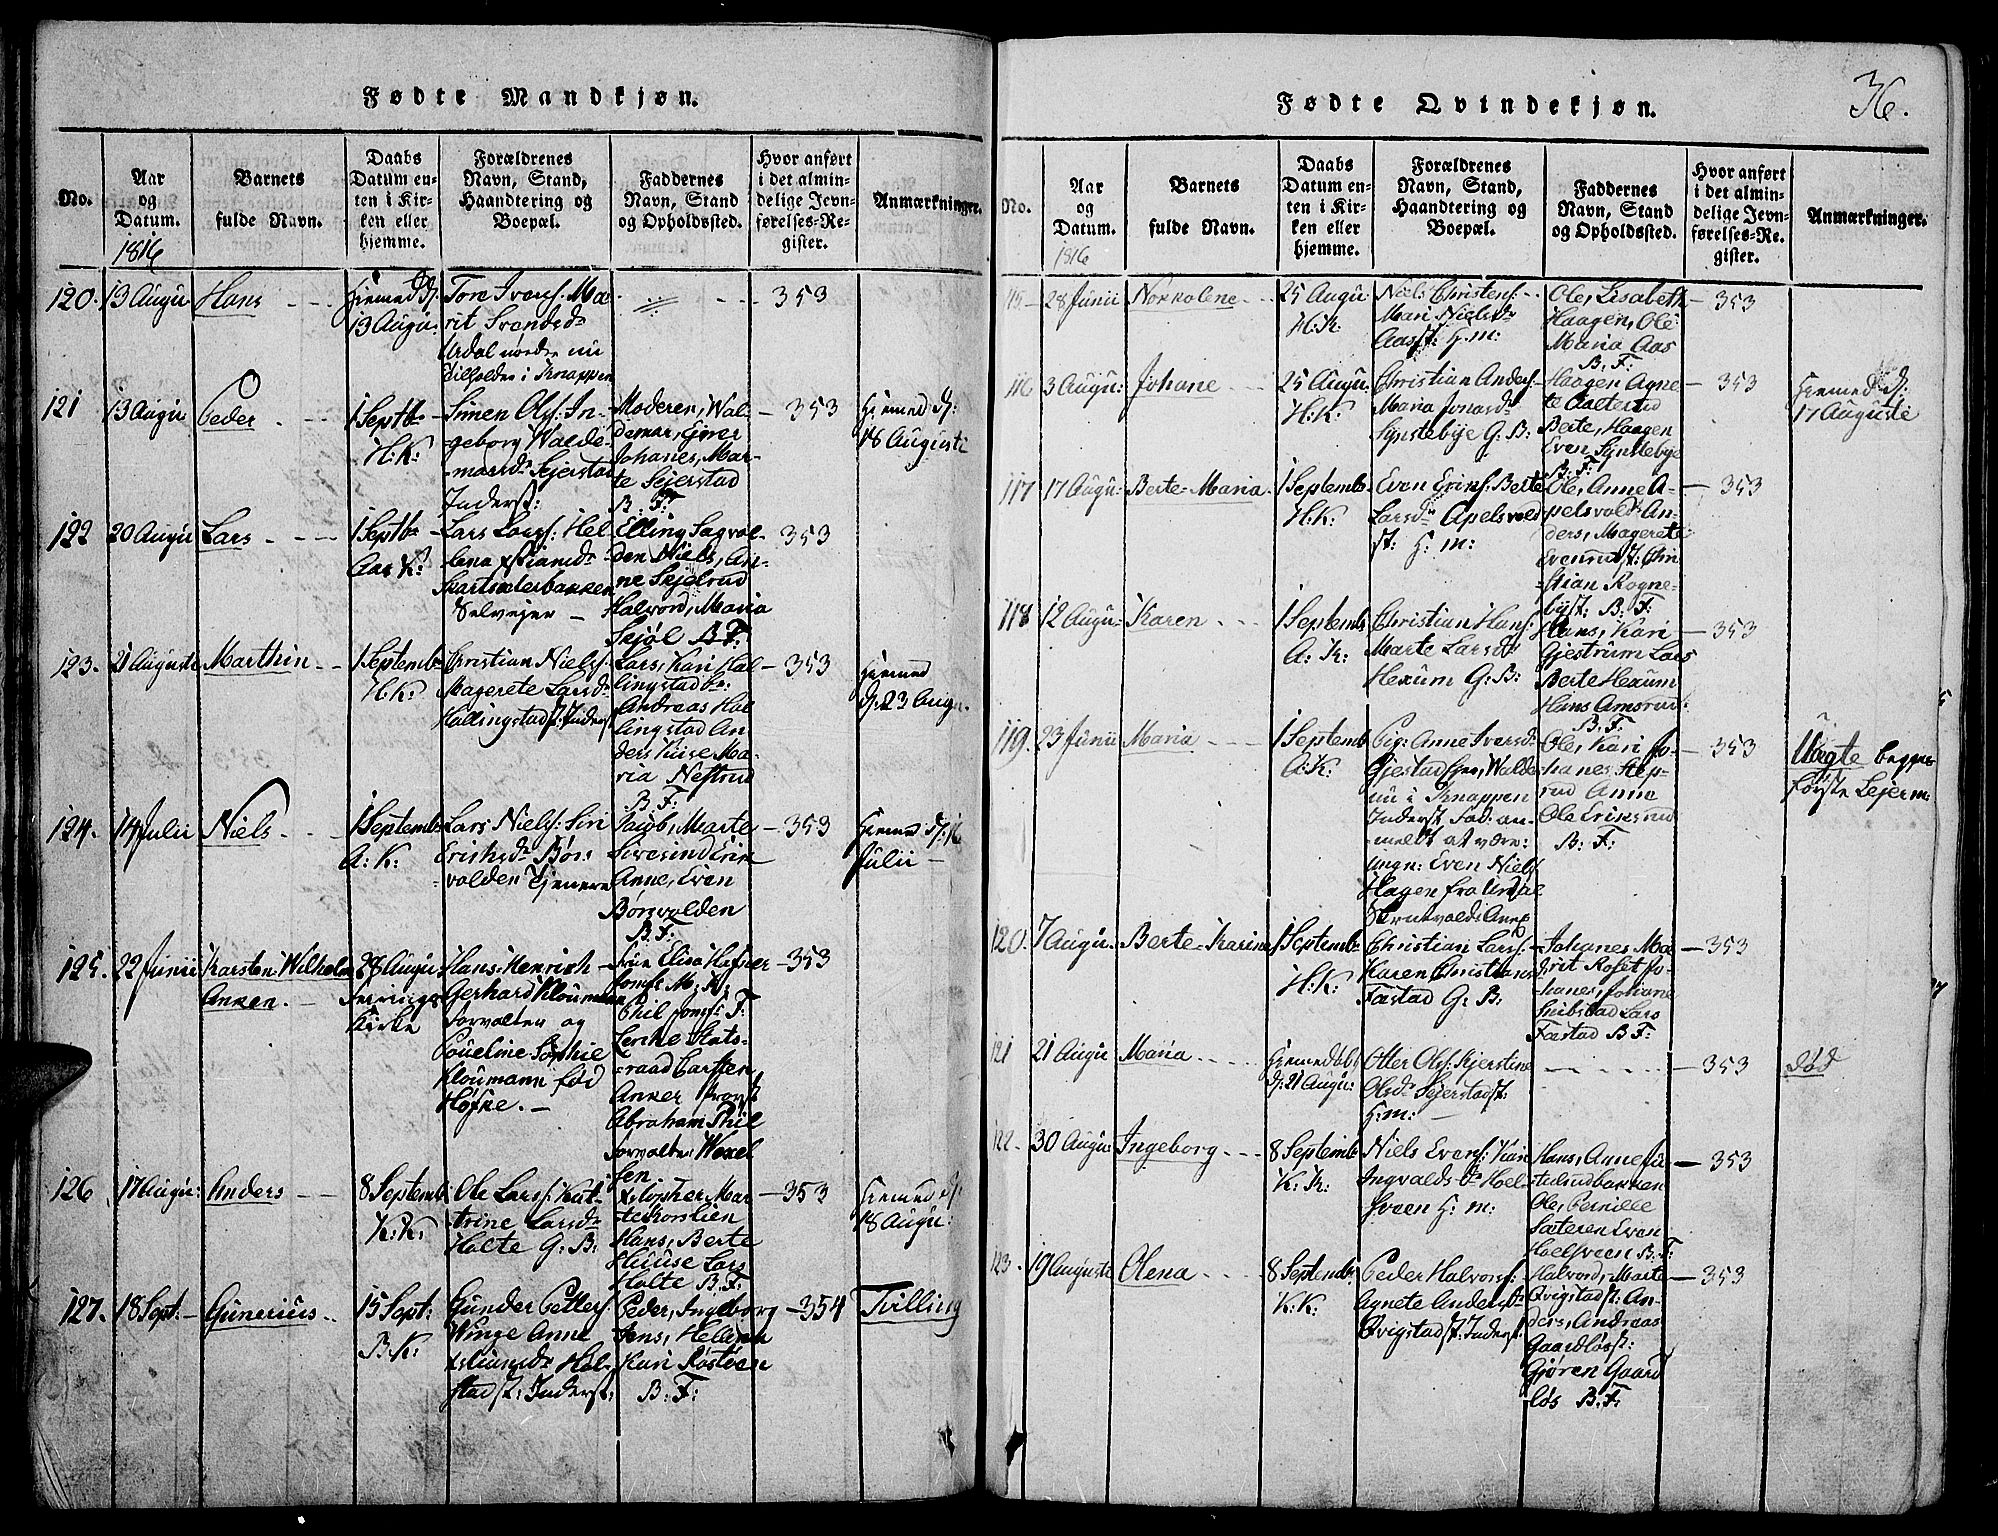 Fødte Mandkjøn.
No.
Aar
og
Datum.
1816
Barnets
fulde Navn.
Daabs
Datum en-
ten i Kir-
ken eller
hjemme.
Forældrenes
Navn, Stand,
Haandtering og
Boepæl.
Faddernes
Navn, Stand
og Opholdssted.
Hvor anført
i det almin-
delige Jevn-
førelses-Re-
gister.
Anmærkninger.
120.
13 Augu
Hans
Hiemed d:
13 Augu:
Tore Ivers: Ma-
rit Svendsd
Urdal nordre nu
tilholder i Knappen
353
121
13 Augu
Peder
1 Septb
H: K:
Simen Ols: In-
geborg Walde-
marsd Sejerstad
Inderst:
Moderen, Wal-
demar, Ejner
Johanes, Mar-
te Sejerstad
B: F:
353
Hiemed d:
18 Augusti
122
20 Augu
Lars
1 Septb
Aas K:
Lars Lars: Hel-
lena xstiansd
Skartsæterbakken
Selvejer
Elling Sagvol-
den Niels, An-
ne Sejelrud
Halword, Maria
Sejøl B F:
353
123.
21 Auguste
Marthin
1 Septemb
H: K:
Christian Niels:
Magerete Larsd
Hallingstad: Inderst
Lars, Kari Hal-
lingstad br:
Andreas Hal-
lingstad An-
ders Huse Ma-
ria Nestrud
B: F:
353
Hiemed
d: 23 Augu.
124.
14 Julii
Niels
1 Septemb
A: K:
Lars Niels: Siri
Eriksd Børs-
volden Tjenere
Jacob, Marte
Sivesind Erik
Anne, Even
Børsvolden
B: F:
353
Hiemed d: 16
Julii
125.
22 Junii
Karsten Wilhelm
Anker.
28 Augu
Kirke
Hans Henrich
Gerhard Kloumann
Forvalter og
Poueline Sophie
Kloumann fød
Høfke.
Frue Elisa Hefner
Jomf: M: K:
Thil Jomf: F:
Lerche Stats-
raad Carsten
Anker Provst
Abraham Phil
Forvalter Wexel-
sen
353
126
17 Augu:
Anders
8 Septemb
K: K:
Ole Lars: Kat-
trine Larsd
Holte G: B:
xstopher Mar-
te Korslien
Hans, Berte
Huuse Lars
Holte B: F:
353
Hiemed d:
18 Augu:
127.
18 Sept:
Gunerius
15 Sept:
B: K:
Gunder Petter:
Winge Anne
xstiansd Hol-
stad: Inderst:
Peder, Ingeborg
Jens, Hellena
Kari Røstøen
B: F:
354
Tvilling
36.
Fødte Qvindekjøn.
No.
Aar
og
Datum.
1816
Barnets
fulde Navn.
Daabs
Datum en-
ten i Kir-
ken eller
hjemme.
Forældrenes
Navn, Stand,
Haandtering og
Boepæl.
Faddernes
Navn, Stand
og Opholdssted.
Hvor anført
i det almin-
delige Jevn-
førelses-Re-
gister.
Anmærkninger.
115
28 Junii
Norkolene
25 Augu
H: K:
Niels Christens:
Mari Nielsd
Aasst: H: m:
Ole, Lisabeth
Haagen, Ole
Maria Aas
B. F:
353
116
3 Augu:
Johane
25 Augu
H: K:
Christian Anders:
Maria Jonasd
Synstebye G: B:
Haagen Agne-
te Aaltestad
Berte, Haagen
Even Synstebye
B: F:
353
Hiemed d:
17 Auguste
117
17 Augu:
Berte-Maria
1 Septemb
H: K:
Even Erins: Berte
Larsd Apelsvold
st: H: m:
Ole, Anne A-
pelsvold: An-
ders, Magerete
Evenrudst: Chri-
stian Rogne-
byst: B: F:
353
118
12 Augu:
Karen
1 Septemb
A: K:
Christian Hans:
Marte Larsd
Hexum G: B:
Hans, Kari
Gjestrum Lars
Berte Hexum
Hans Amsrud:
B: F:
353
119.
23 Junii
Maria
1 Septemb
A: K:
Pig: Anne Iversd
Gjestad
nu i Knappen
Inderst Fad: an-
meldt at være:
ungk: Even Niels:
Hagen fra Urdal
Ole, Kari Jo-
hanes Step-
rud Anne
Ole Eriksrud
B: F:
353
Uægte begges
første Lejerm:
120.
7 Augu.
Berte-Karine
1 Septemb
H: K:
Christian Lars:
Karen Christians
Fæstad G: B:
Johanes Ma-
rit Roset Jo-
hanes, Johane
Snibstad Lars
Fæstad B: F:
353
121
21 Augu
Maria
Hiemedøbt
d: 21 Augu:
Otter Ols: Kjerstine
Olsd Sejerstadst:
H: m:
353
død
122
30 Augu:
Ingeborg
8 Septemb
K: K:
Niels Evens: Kari
Ingvaldsd Hoel-
sveen H: m:
Hans, Anne Ju-
telundbakken
Ole, Pernille
Sæteren Even
Hoelsveen B: F:
353
123.
19 Auguste
Olena
8 Septemb
K: K:
Peder Halvors:
Agnete Andersd
Qvigstadst: Inderst
Halvord, Marte
Qvigstadst: An-
ders, Andreas
Gaardløsst:
Gjøren Gaard-
løs B: F:
353